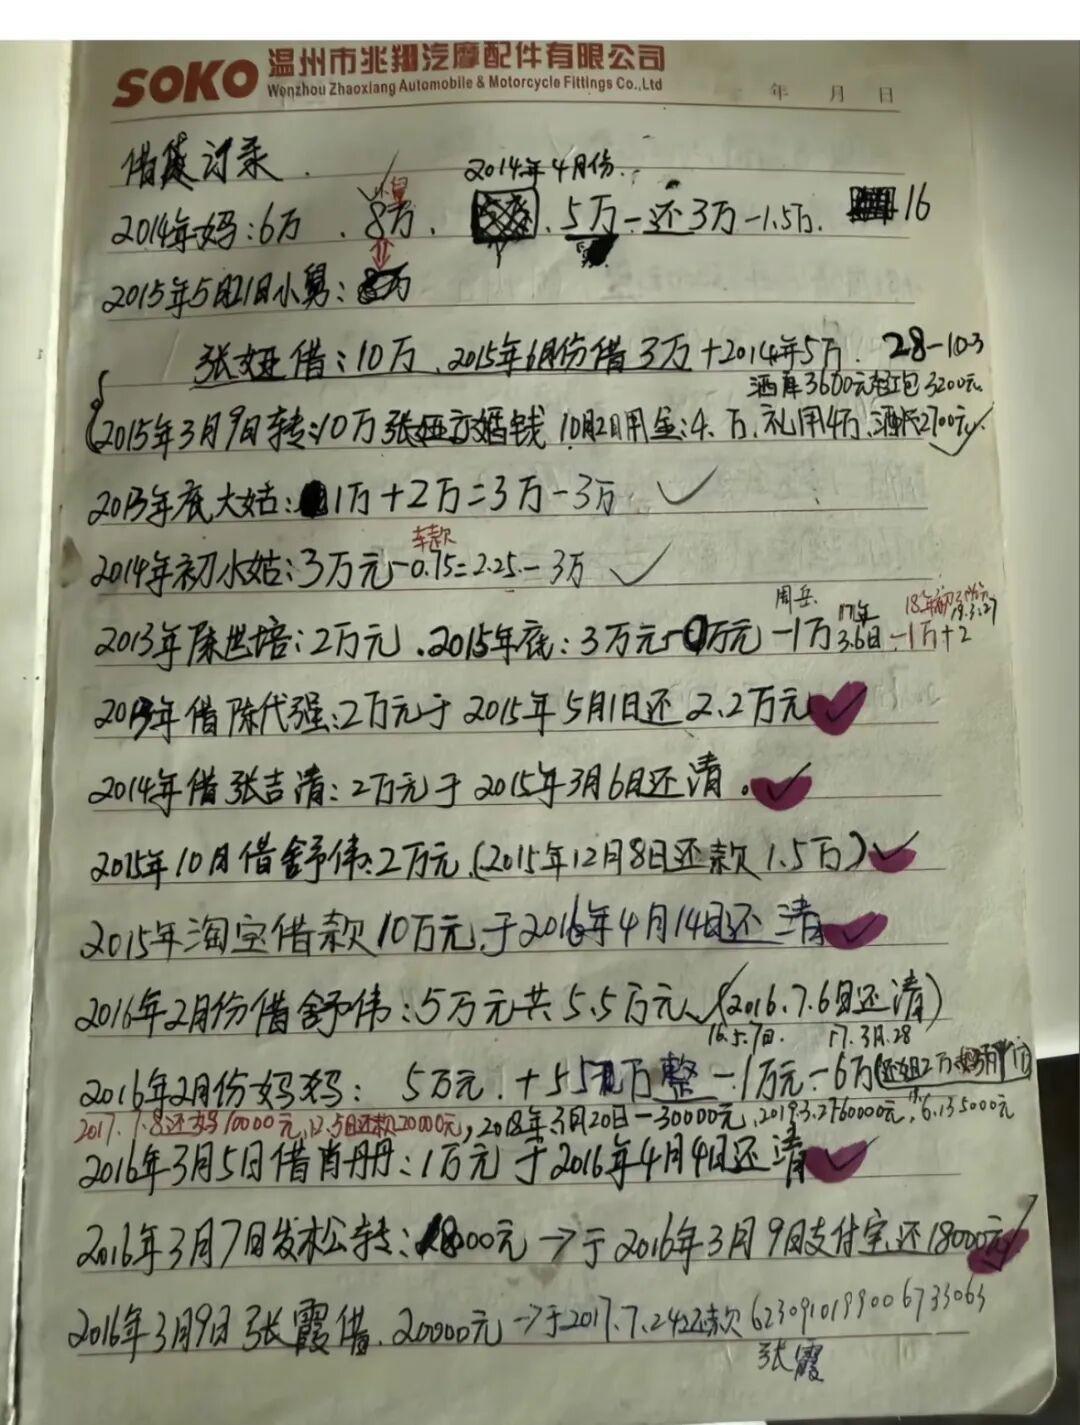 SOKO 温州市兆翔汽摩配件有限公司
Wenzhou Zhaoxiang Automobile & Motorcycle Fittings Co.,Ltd
年 月 日
借贷记录.
2014年4月份.
2014年妈:6万 、8万、 、5万-还3万-1.5万. 16
2015年5月21日小舅:8万
张娅借:10万、2015年6月份借3万+2014年5万. 28-10-3
酒席3600元红包3200元
2015年3月9日转:10万张娅结婚钱 10月2日用金:4万、礼用4万、酒代2700元
2013年底大姑: 1万+2万=3万-3万
车款
2014年初小姑:3万元-0.75=2.25-3万
周岳 17年 18年 19.3.27
2013年陈世培:2万元、2015年底:3万元 万元-1万 3.6日 -1万+2
2013年借陈代强:2万元于2015年5月1日还2.2万元
2014年借张吉清:2万元于2015年3月6日还清。
2015年10月借舒伟:2万元(2015年12月8日还款1.5万)
2015年淘宝借款10万元,于2016年4月14日还清
2016年2月份借舒伟:5万元共5.5万元、(2016.7.6日还清)
16.5.7日. 17.3月.28
2016年2月份妈妈: 5万元.+5 万整-1万元-6万(还姐2万
2017.7.8还妈10000元,12.5日还款20000元,2018年3月20日-30000元,2019.3.27 60000元, 6.13 5000元
2016年3月5日借肖丹丹:1万元于2016年4月4日还清
2016年3月7日发松转:18000元→于2016年3月9日支付宝还18000元
2016年3月9日张霞借.20000元→于2017.7.24还款6230910199006733063
张霞